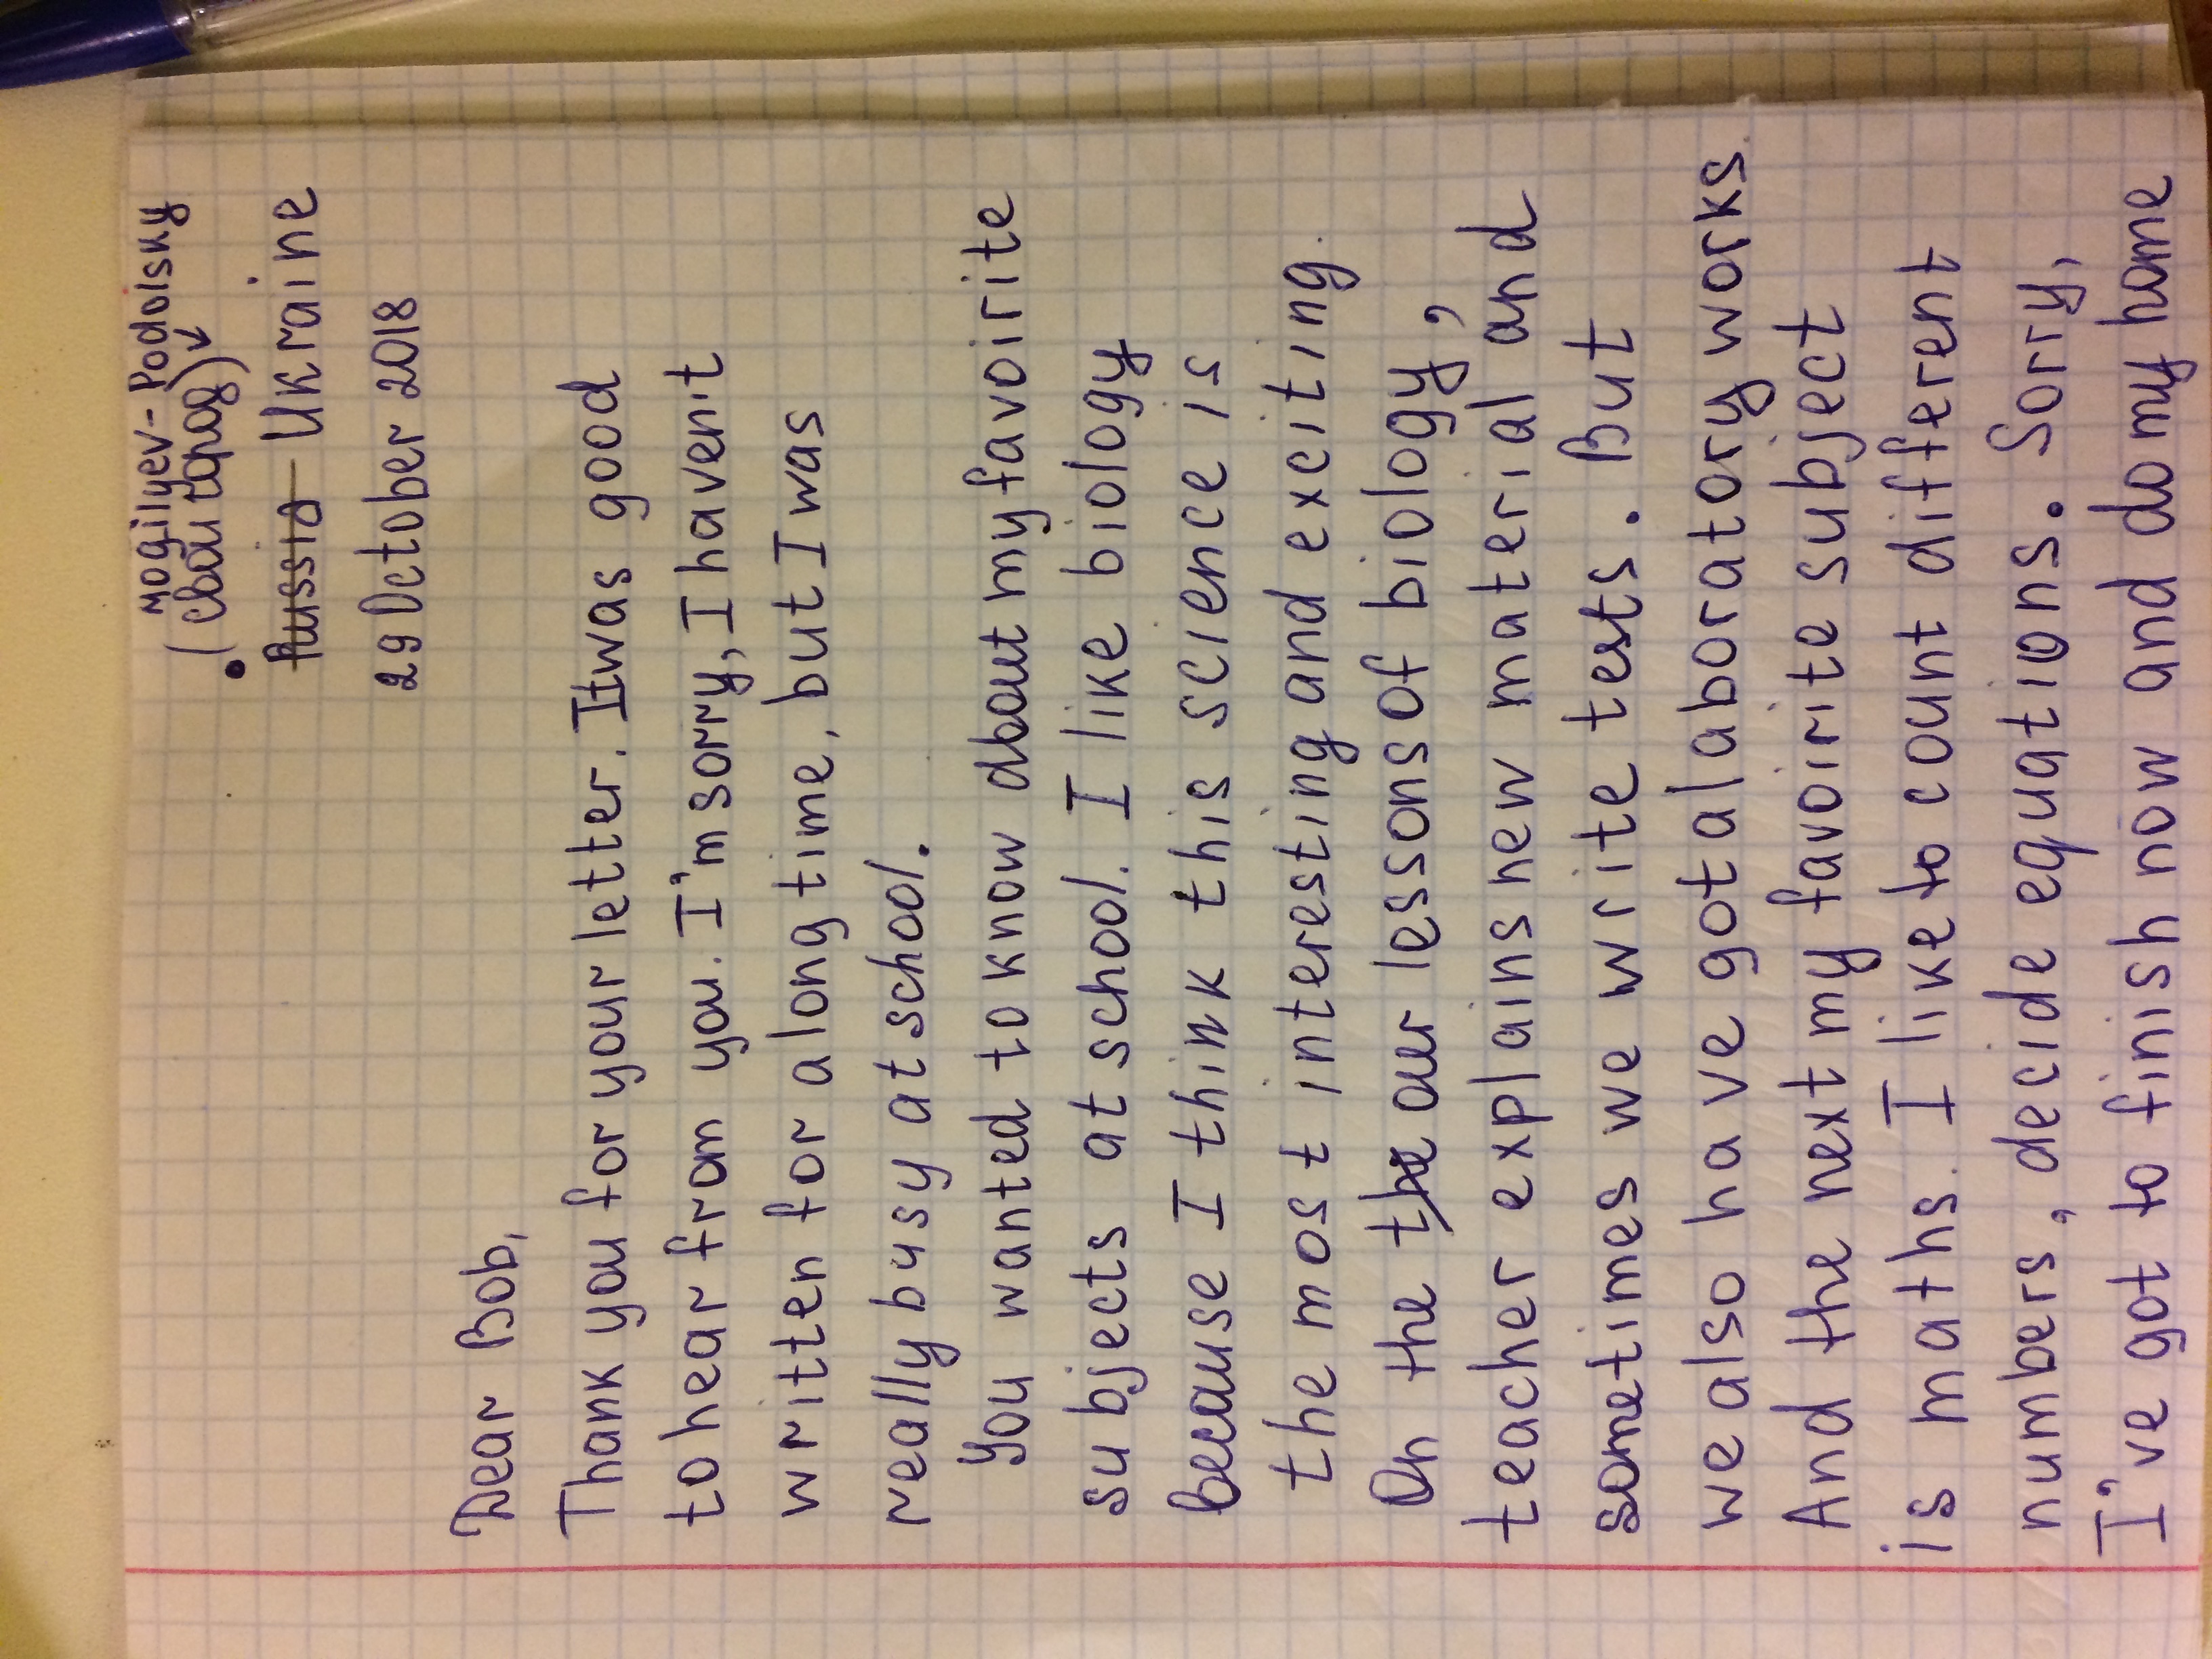 Mogilyev-Podolsky
(свой город)
Russia Ukraine
29 October 2018
Dear Bob,
Thank you for your letter. It was good
to hear from you. I'm sorry, I haven't
written for a long time, but I was
really busy at school.
You wanted to know about my favoirite
subjects at school. I like biology
because I think this science is
the most interesting and exciting.
On the the our lessons of biology,
teacher explains new material and
sometimes we write tests. But
we also have got a laboratory works.
And the next my favoirite subject
is maths. I like to count different
numbers, decide equations. Sorry,
I've got to finish now and do my home